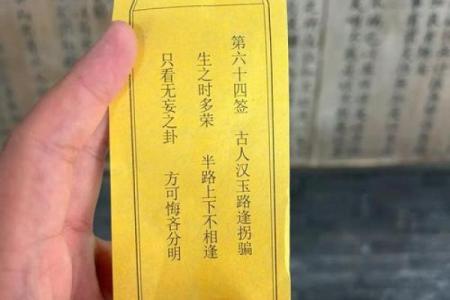 第六十四签 古人汉玉路逢拐骗
生之时多荣 半路上下不相逢
只看无妄之卦 方可悔吝分明